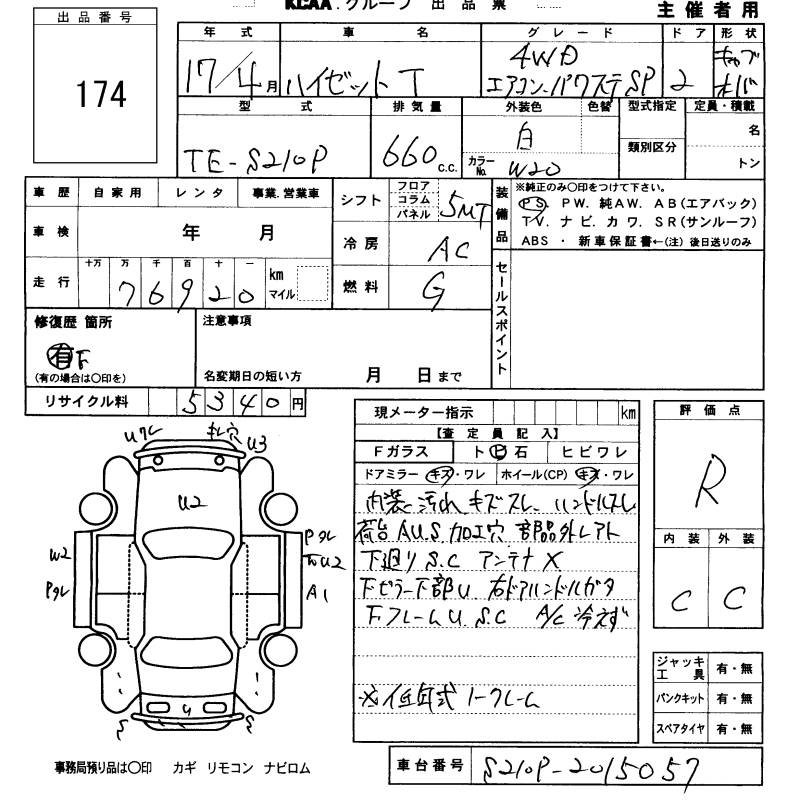 KCAA.グループ 出品票
主催者用
出品番号
174
年式 車名 グレード ドア 形状
17/4月 ハイゼットT 4WD エアコン・パワステSP 2 キャブオーバ
型式 排気量 外装色 色替 型式指定 定員・積載
TE-S210P 660c.c. 白 カラーNo. W20 類別区分 名 トン
車歴 自家用 レンタ 事業.営業車
車検 年 月
走行 十万 万 千 百 十 一
76920 km マイル
シフト フロア コラム パネル 5MT
冷房 AC
燃料 G
装備品
※純正のみ〇印をつけて下さい。
PS PW. 純AW. AB(エアバック)
TV. ナビ. カワ. SR(サンルーフ)
ABS ・ 新車保証書←(注)後日送りのみ
セールスポイント
修復歴 箇所
有 下
(有の場合は〇印を)
注意事項
名変期日の短い方 月 日まで
リサイクル料 5340円
現メーター指示 km
【査定員記入】
Fガラス ト ビ 石 ヒビワレ
ドアミラー キズ・ワレ ホイール(CP) キズ・ワレ
内装 汚れ キズ スレ ハンドルスレ
荷台 A.U.S 加工穴 部品外レアト
下廻り S.C アンテナX
下ピラー下部U 右ドアハンドルガタ
下フレームU S.C A/C 冷えず
※低年式 ノークレーム
評価点
R
内装 外装
C C
ジャッキ工具 有・無
パンクキット 有・無
スペアタイヤ 有・無
Uワレ キレ穴 U3
U2
W2 Pタレ
Pタレ
下U2
A1
U
事務局預り品は〇印 カギ リモコン ナビロム
車台番号 S210P-2015057